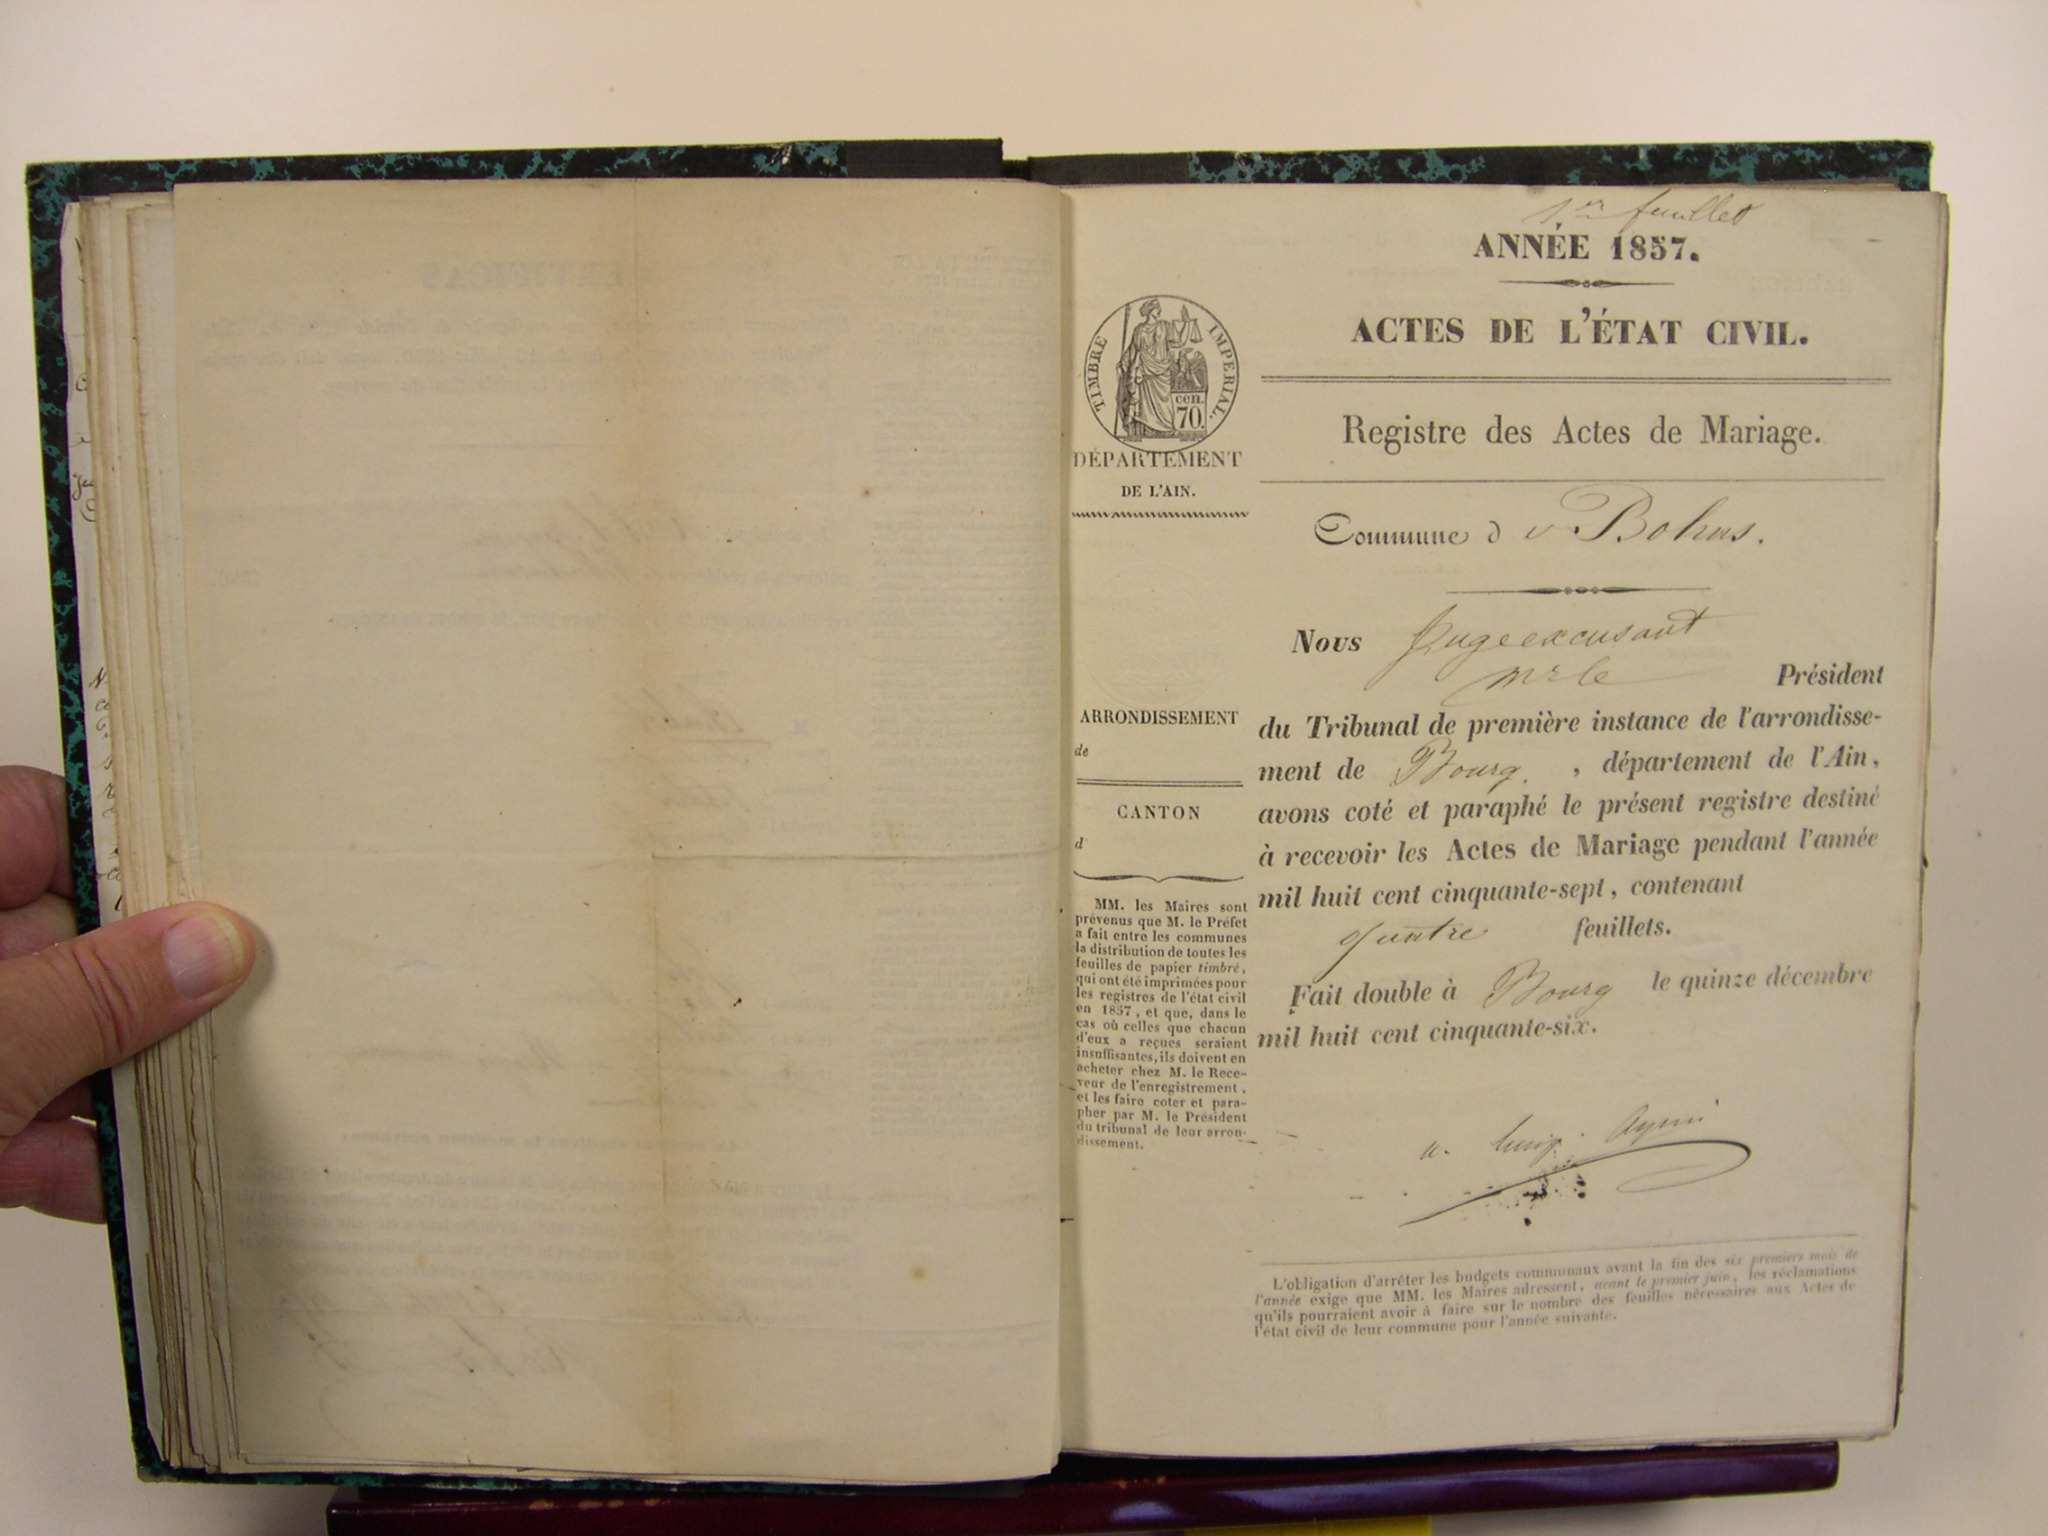 1er feuillet
ANNÉE 1857.
ACTES DE L'ÉTAT CIVIL.
Registre des Actes de Mariage.
Commune de Bohas.
Nous Juge excusant
Mr le Président
du Tribunal de première instance de l'arrondisse-
ment de Bourg, département de l'Ain,
avons coté et paraphé le présent registre destiné
à recevoir les Actes de Mariage pendant l'année
mil huit cent cinquante-sept, contenant
quatre feuillets.
Fait double à Bourg le quinze décembre
mil huit cent cinquante-six.
L'obligation d'arrêter les budgets communaux avant la fin des six premiers mois de
l'année exige que MM. les Maires adressent, avant le premier juin, les réclamations
qu'ils pourraient avoir à faire sur le nombre des feuilles nécessaires aux Actes de
l'état civil de leur commune pour l'année suivante.
TIMBRE IMPERIAL.
cen.
70.
DÉPARTEMENT
DE L'AIN.
ARRONDISSEMENT
de
CANTON
d'
MM. les Maires sont
prévenus que M. le Préfet
a fait entre les communes
la distribution de toutes les
feuilles de papier timbré,
qui ont été imprimées pour
les registres de l'état civil
en 1857, et que, dans le
cas où celles que chacun
d'eux a reçues seraient
insuffisantes, ils doivent en
acheter chez M. le Rece-
veur de l'enregistrement,
et les faire coter et para-
pher par M. le Président
du tribunal de leur arron-
dissement.